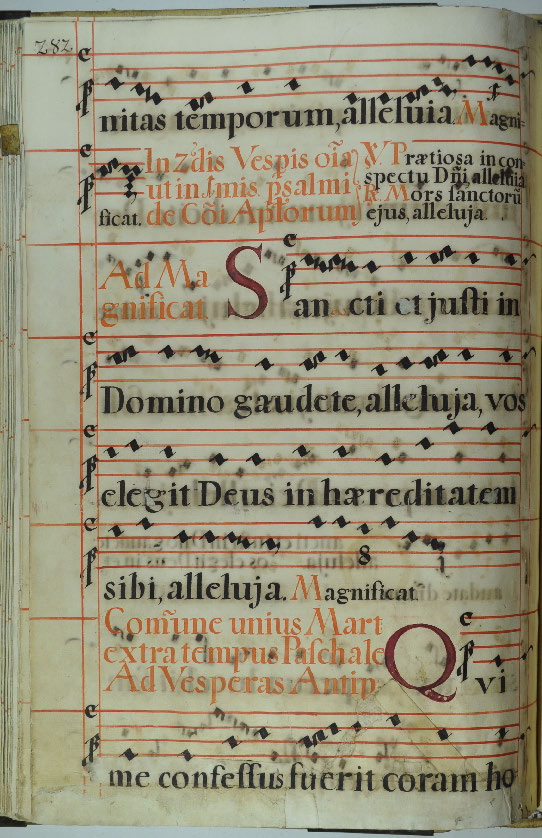 282
nitas temporum, alleluia. Magni=
In 2.dis Vesp̃is oĩa
ut in 1.mis psalmi
ficat. de Cõi Aplorum
V. Prætiosa in con
spectu Dñi, alleluia
R. Mors sanctorũ
ejus, alleluja.
Ad Ma
gnificat
San cti et justi in
Domino gaudete, alleluja, vos
elegit Deus in hæreditatem
8
sibi, alleluja. Magnificat.
Com̃une unius Mart
extra tempus Paschale
Ad Vesperas Antip.
Qvi
me confessus fuerit coram ho